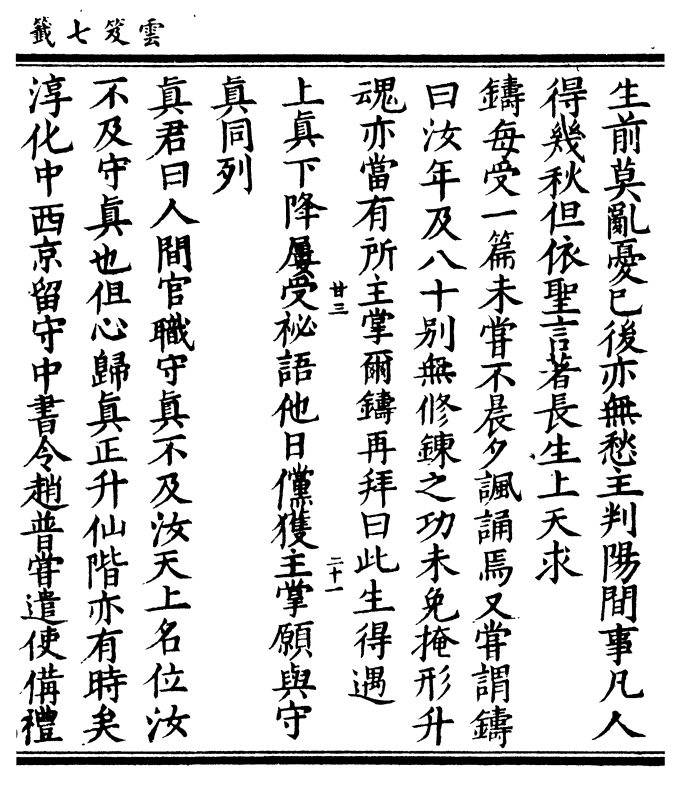 雲笈七籤
生前莫亂憂已後亦無愁主判陽間事凡人
得幾秋但依聖言著長生上天求
鑄每受一篇未嘗不晨夕諷誦焉又嘗謂鑄
曰汝年及八十别無修鍊之功未免掩形升
魂亦當有所主掌爾鑄再拜曰此生得遇
廿三
二十一
上真下降屢受祕語他日儻獲主掌願與守
真同列
真君曰人間官職守真不及汝天上名位汝
不及守真也但心歸真正升仙階亦有時矣
淳化中西京留守中書令趙普嘗遣使備禮